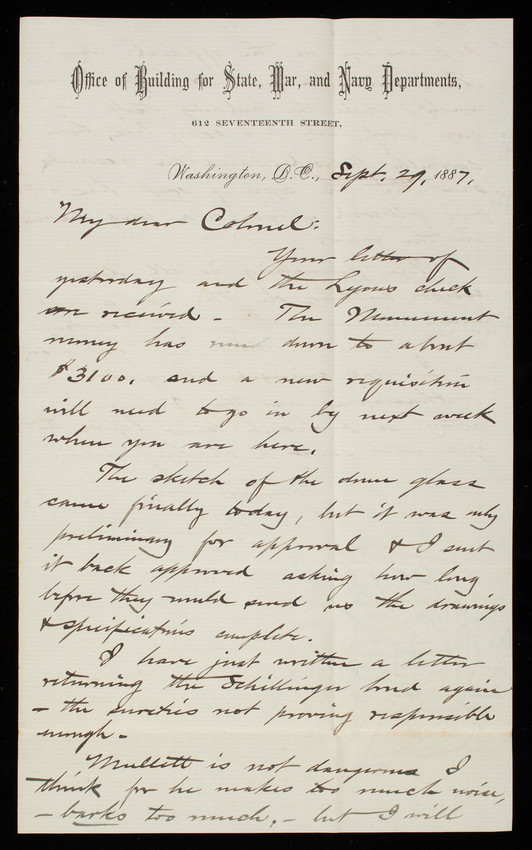 Office of Building for State, War, and Navy Departments,
612 SEVENTEENTH STREET,
Washington, D.C., Sept. 29, 1887,
My dear Colonel:
Your letter of
yesterday and the Lyons check
are received - The Monument
money has run down to about
$3100. and a new requisition
will need to go in by next week
when you are here.
The sketch of the dome glass
came finally today, but it was only
preliminary for approval & I sent
it back approved asking how long
before they would send us the drawings
& specifications complete.
I have just written a letter
returning the Schillinger bond again
- the sureties not proving responsible
enough -
Mullett is not dangerous I
think for he makes too much noise,
- barks too much, - but I will